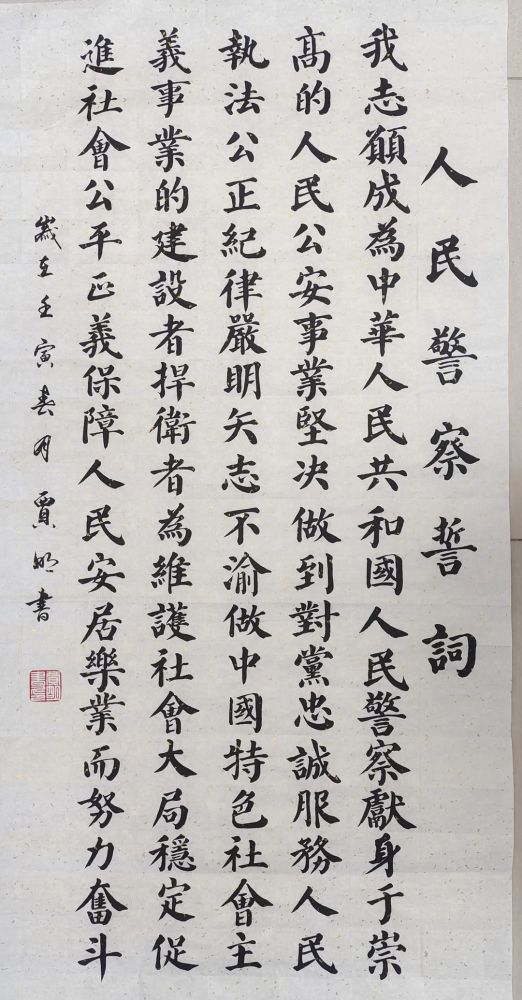 人民警察誓詞
我志願成為中華人民共和國人民警察獻身于崇
高的人民公安事業堅决做到對黨忠誠服務人民
執法公正紀律嚴明矢志不渝做中國特色社會主
義事業的建設者捍衛者為維護社會大局穩定促
進社會公平正義保障人民安居樂業而努力奮斗
歲在壬寅春月賈明書